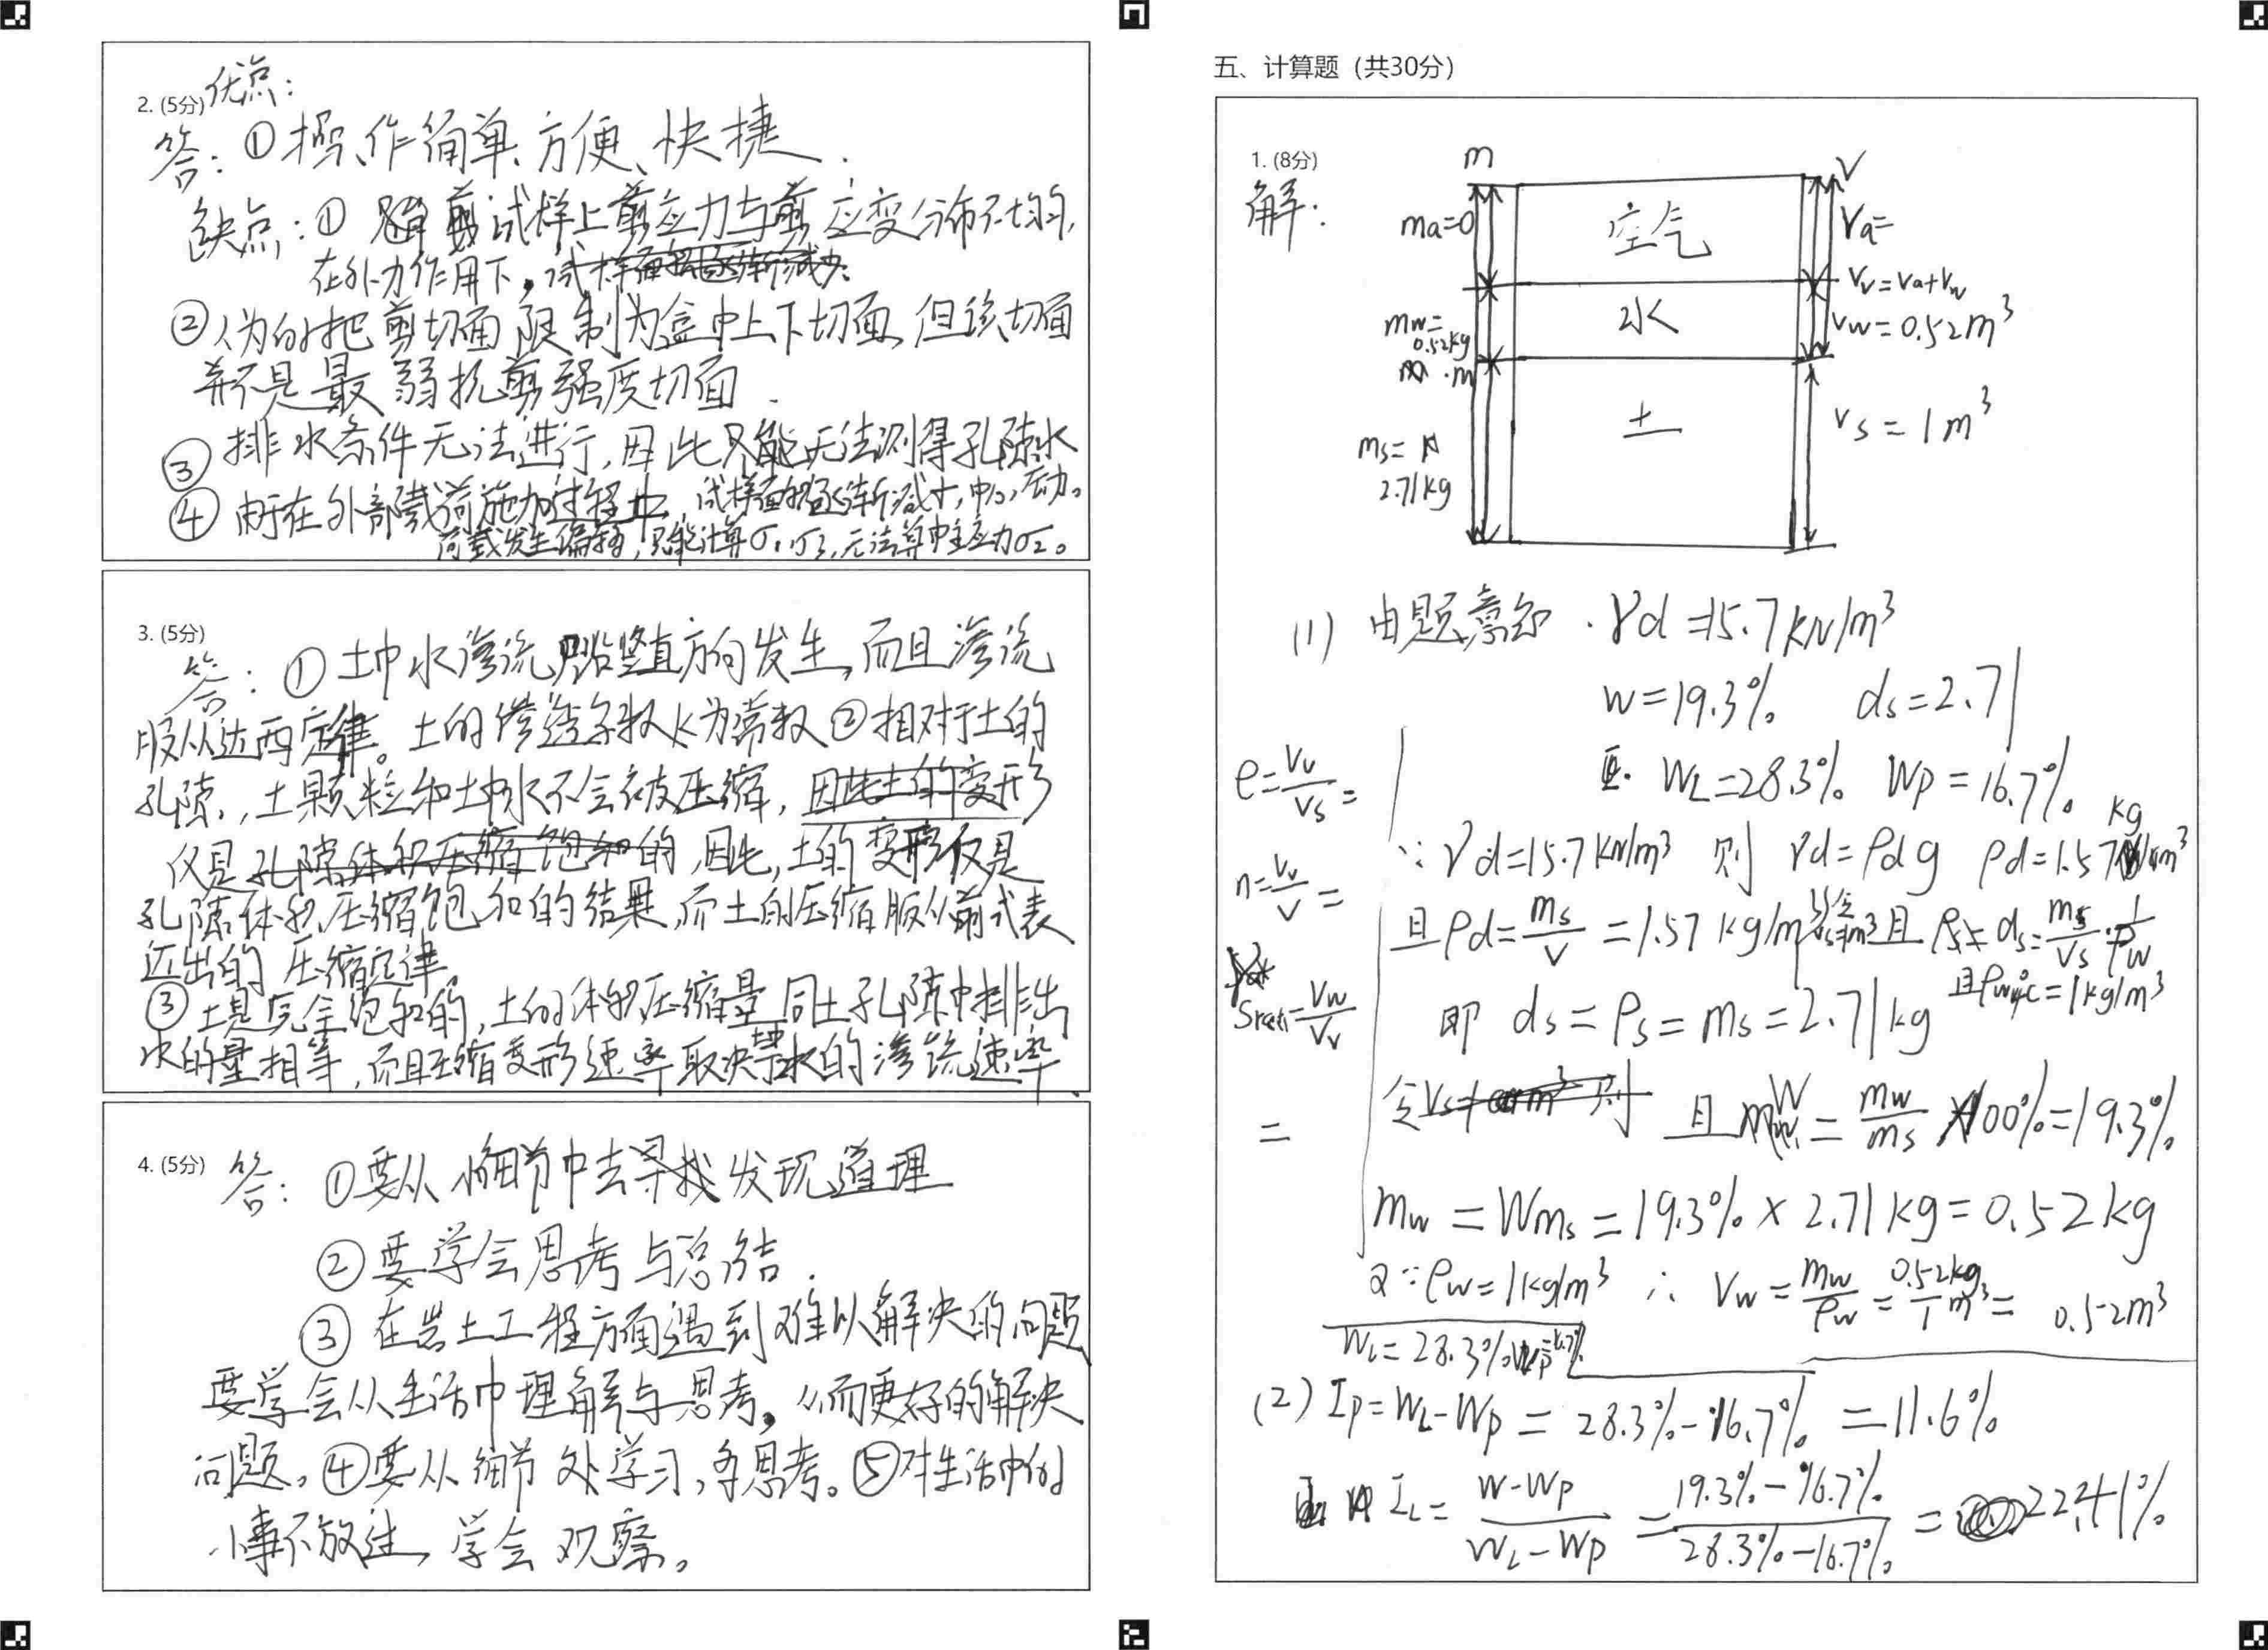 2. (5分) 优点:
答: ①操作简单、方便、快捷.
缺点: ① 剪试样上剪应力与剪应变分布不均匀,
在外力作用下,
②人为的把剪切面限制为盒中上下切面,但该切面
并不是最弱抗剪强度切面.
③ 排水条件无法进行,因此只能无法测得孔隙水
④ 由于在外部载荷施加过程中,试样面积逐渐减小,中心,压力。
荷载发生偏移,只能计算σ₁,σ₃,无法算中主应力σ₂。
3. (5分)
答: ①土中水渗流只沿竖直方向发生,而且渗流
服从达西定律。土的渗透系数k为常数②相对于土的
孔隙,土颗粒和土中水不会被压缩,因此土的变形
仅是孔隙体积压缩饱和的,因此,土的变形仅是
孔隙体积压缩饱和的结果,而土的压缩服从前式表
达出的压缩定律。
③土是完全饱和的,土的体积压缩量同土孔隙中排出
水的量相等,而且压缩变形速率取决于土中水的渗流速率.
4. (5分) 答: ①要从小细节中去寻找发现道理
②要学会思考与总结.
③在岩土工程方面遇到难以解决的问题
要学会从生活中理解与思考。从而更好的解决
问题。④要从细节处学习,多思考。⑤对生活中的
小事不放过,学会观察。
五、计算题(共30分)
1. (8分)
解:
m V
ma=0 空气 Va=
Vv=Va+Vw
mw=0.52kg 水 Vw=0.52m³
ms=2.71kg 土 Vs=1m³
(1) 由题意知. γd=15.7kN/m³
w=19.3% ds=2.71
WL=28.3% Wp=16.7%
e=Vv/Vs=
∵γd=15.7kN/m³ 则 γd=ρdg ρd=1.57kg/m³
n=Vv/V=
且ρd=ms/V=1.57kg/m³ 令Vs=1m³ 且 ds=ms/Vs·1/ρw
且ρw4°c=1kg/m³
Sr=Vw/Vv
即 ds=ρs=ms=2.71kg
且 W=mw/ms×100%=19.3%
=
mw=Wms=19.3%×2.71kg=0.52kg
又∵ρw=1kg/m³ ∴ Vw=mw/ρw=0.52kg/1 m³=0.52m³
WL=28.3% Wp=16.7%
(2) Ip=WL-Wp=28.3%-16.7%=11.6%
IL=W-Wp/WL-Wp=19.3%-16.7%/28.3%-16.7%=22.41%